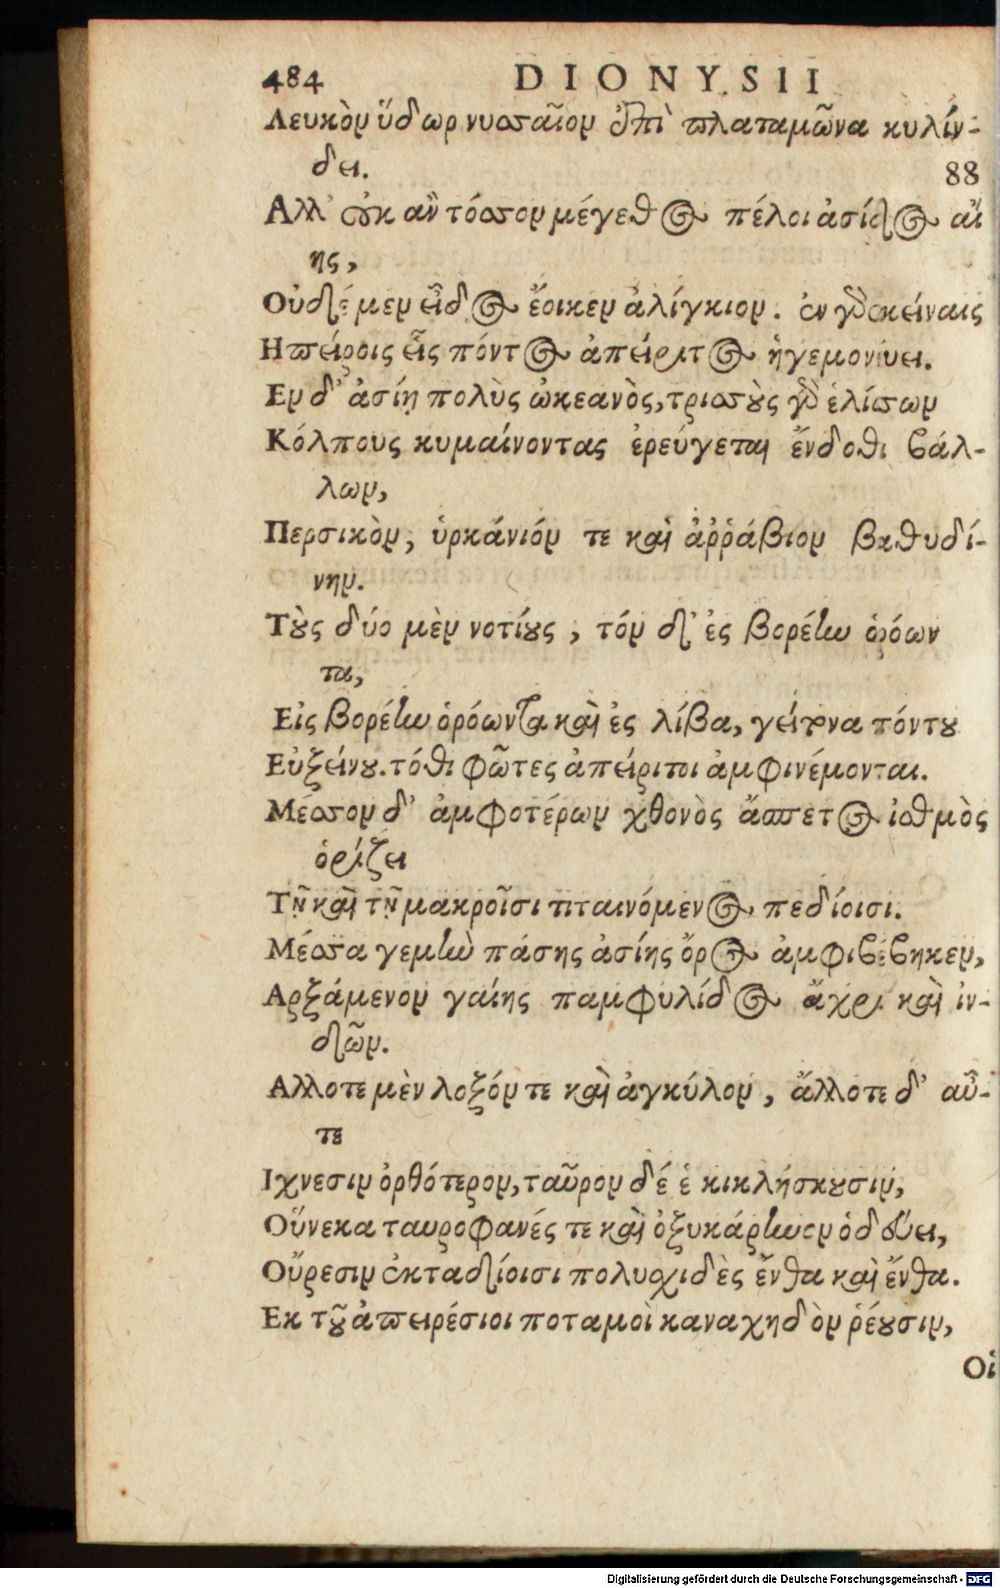 484 DIONYSII
Λευκὸν ὕδωρ νυσσαῖον ἐπὶ πλαταμῶνα κυλίν-
δει. 88
Αλλ' οὐκ ἂν τόσσον μέγεθος πέλοι ἀσίδος αἴ
ης,
Οὐδέ μεν εἶδος ἔοικεν ἀλίγκιον. ἐν γὸ ἐκείναις
Ηπείροις εἷς πόντος ἀπείριτος ἡγεμονεύει.
Εν δ' ἀσίῃ πολὺς ὠκεανὸς, τρισσοὺς γὸ ἑλίσσων
Κόλπους κυμαίνοντας ἐρεύγεται ἔνδοθι βάλ-
λων,
Περσικὸν, ὑρκάνιόν τε καὶ ἀῤῥάβιον βαθυδί-
νην.
Τοὺς δύο μὲν νοτίους, τόν δ' ἐς βορέην ὁρόων
τα,
Εἰς βορέην ὁρόωντα καὶ ἐς λίβα, γείτονα πόντου
Εὐξείνου. τόθι φῶτες ἀπείριτοι ἀμφινέμονται.
Μέσσον δ' ἀμφοτέρων χθονὸς ἄσπετος ἰσθμὸς
ὁρίζει
Τῇ καὶ τῇ μακροῖσι τιταινόμενος πεδίοισι.
Μέσσα γεμὴν πάσης ἀσίης ὄρος ἀμφιβέβηκεν,
Αρξάμενον γαίης παμφυλίδος ἄχρι καὶ ἰν-
δῶν.
Αλλοτε μὲν λοξόν τε καὶ ἀγκύλον, ἄλλοτε δ' αὖ-
τε
Ιχνεσιν ὀρθότερον, ταῦρον δέ ἑ κικλήσκουσιν,
Οὕνεκα ταυροφανές τε καὶ ὀξυκάρηνον ὁδεύει,
Οὔρεσιν ἐκταδίοισι πολυσχιδὲς ἔνθα καὶ ἔνθα.
Εκ τοῦ ἀπειρέσιοι ποταμοὶ καναχηδὸν ῥέουσιν,
Οἱ
Digitalisierung gefördert durch die Deutsche Forschungsgemeinschaft - DFG